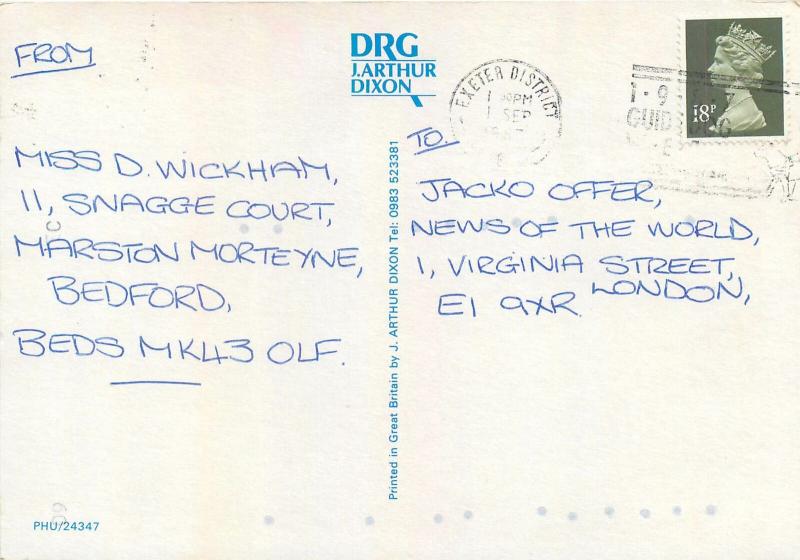 FROM
MISS D. WICKHAM,
11, SNAGGE COURT,
MARSTON MORTEYNE,
BEDFORD,
BEDS MK43 OLF.
PHU/24347
DRG
J. ARTHUR
DIXON
Printed in Great Britain by J. ARTHUR DIXON Tel: 0983 523381
EXETER DISTRICT
PM
1 SEP
18P
TO
JACKO OFFER,
NEWS OF THE WORLD,
1, VIRGINIA STREET,
LONDON,
E1 9XR.